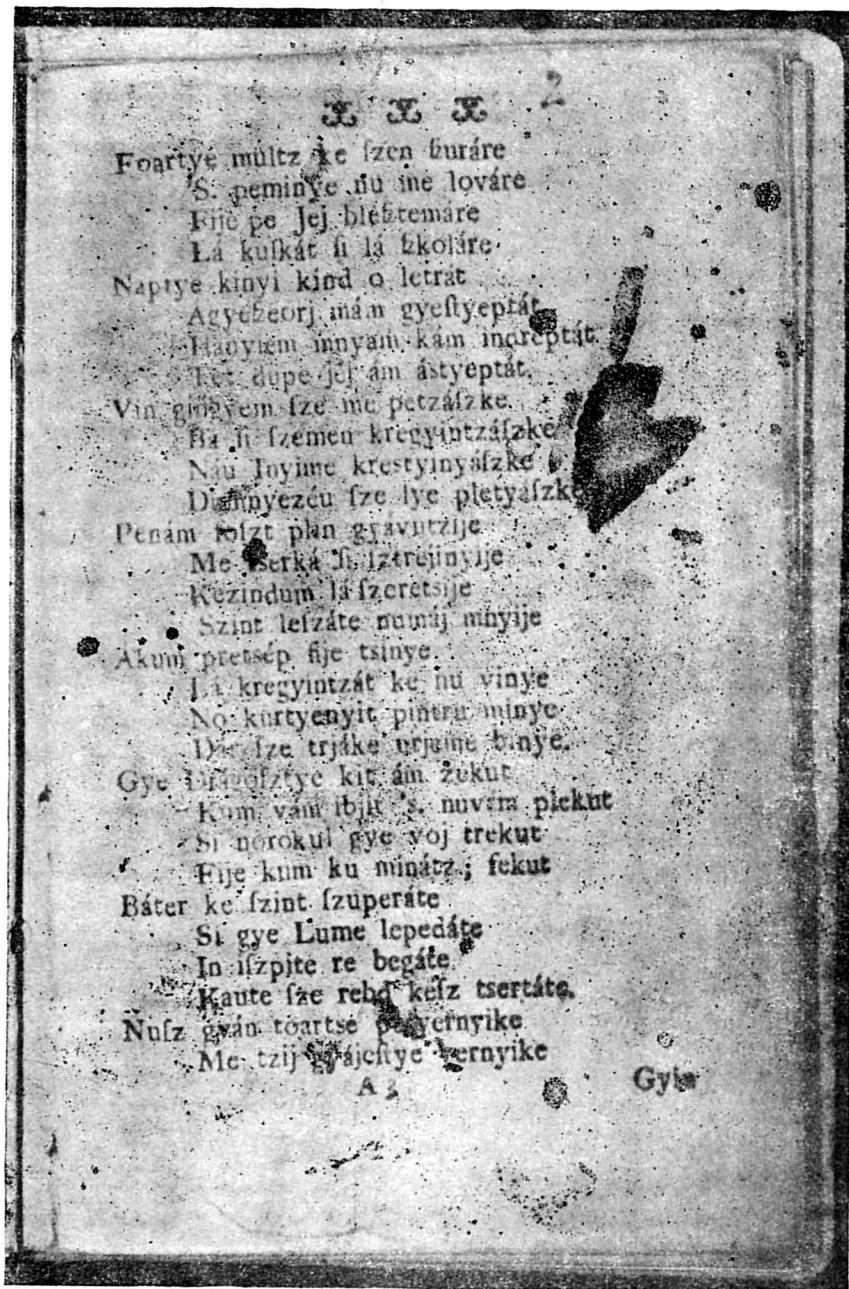 2
Foartye multz ke ſzen ƶuráre
'S. peminye nu me lováre
Fije pe Jej bleƶtemáre
Lá kuſkát ſi lá ƶkoláre
Naptye kinyi kind o letrát
mám gyeſtyeptát
innyam kám indreptát.
dupe jej ám ástyeptát.
Vin gingyem ſze me petzáſzke.
Ba ſi ſzemen kregyintzáſzke
Náu Inyime krestyinyáſzke
ſze lye pletyáſzke
Penám foſzt plin gyávutzije
Me tserká ſi ſztrejinyije
Kezindum lá ſzeretsije
Szint leſzáte numáj mnyije
Akum pretsép fije tsinye.
Lá kregyintzát ke nu vinye
No kurtyenyit pintru minye
ſze trjáke urjume binye.
Gye Drágoſztye kit ám ƶukut
Kum vám ibjit 's. nuvém plekut
Si norokul gye voj trekut
Fije kum ku minátz; fekut
Báter ke ſzint ſzuperáte
Si gye Lume lepedáte
In iſzpite re begáte
Kaute ſze rebd keſz tsertáte.
Nuſz gyán toartse
Me tzij vernyike
A 3